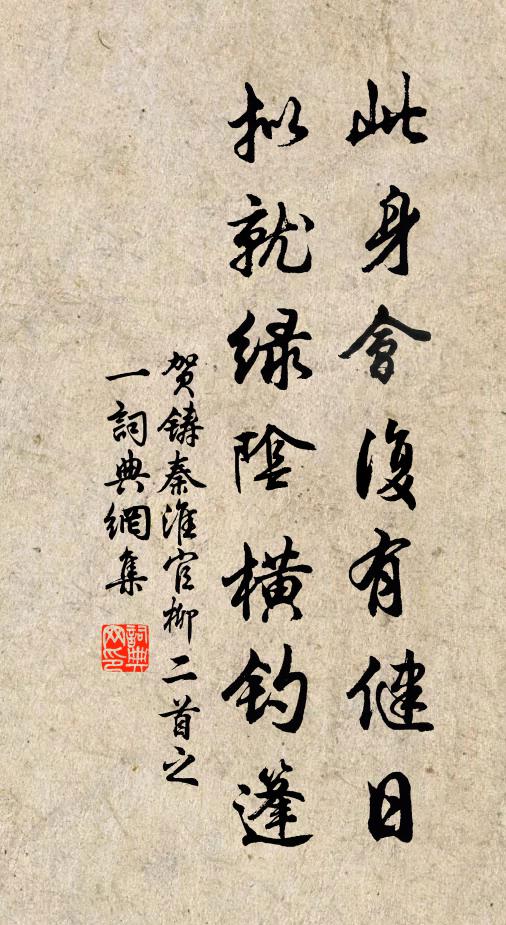 此身會復有健日
拟就绿陰横钓篷
贺铸秦淮官柳二首之
一詞典網集
詞典网印